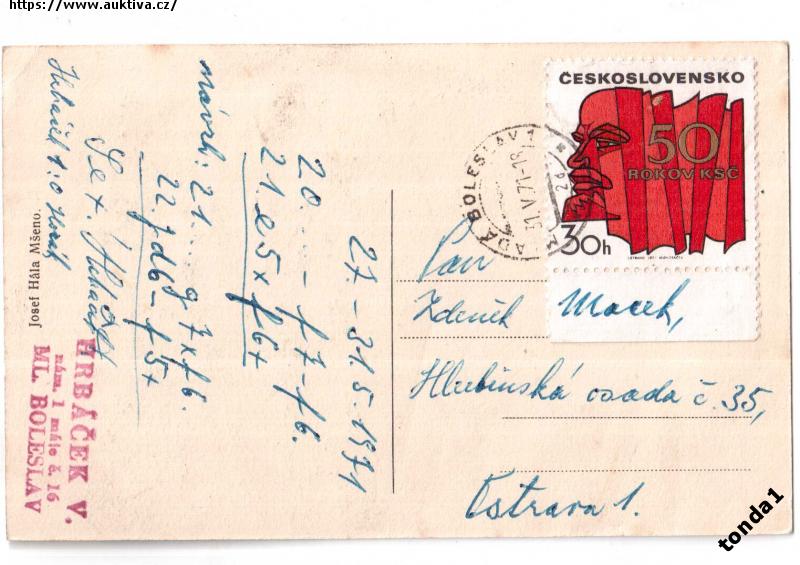 https://www.auktiva.cz/
ČESKOSLOVENSKO
50
ROKOV KSČ
30h
MLADÁ BOLESLAV 1
31.V.71-18
Pan
Zdeněk Macek,
Hlubinská osada č. 35,
Ostrava 1.
27.-31.5.1971
20. ... - f7-f6.
21. e5xf6+
návrh: 21. ... g7xf6.
22. d6-f5+
Hrbáček 1:0 Horák
Josef Hála Mšeno.
HRBÁČEK V.
nám. 1 máje č. 16
ML. BOLESLAV
tonda1